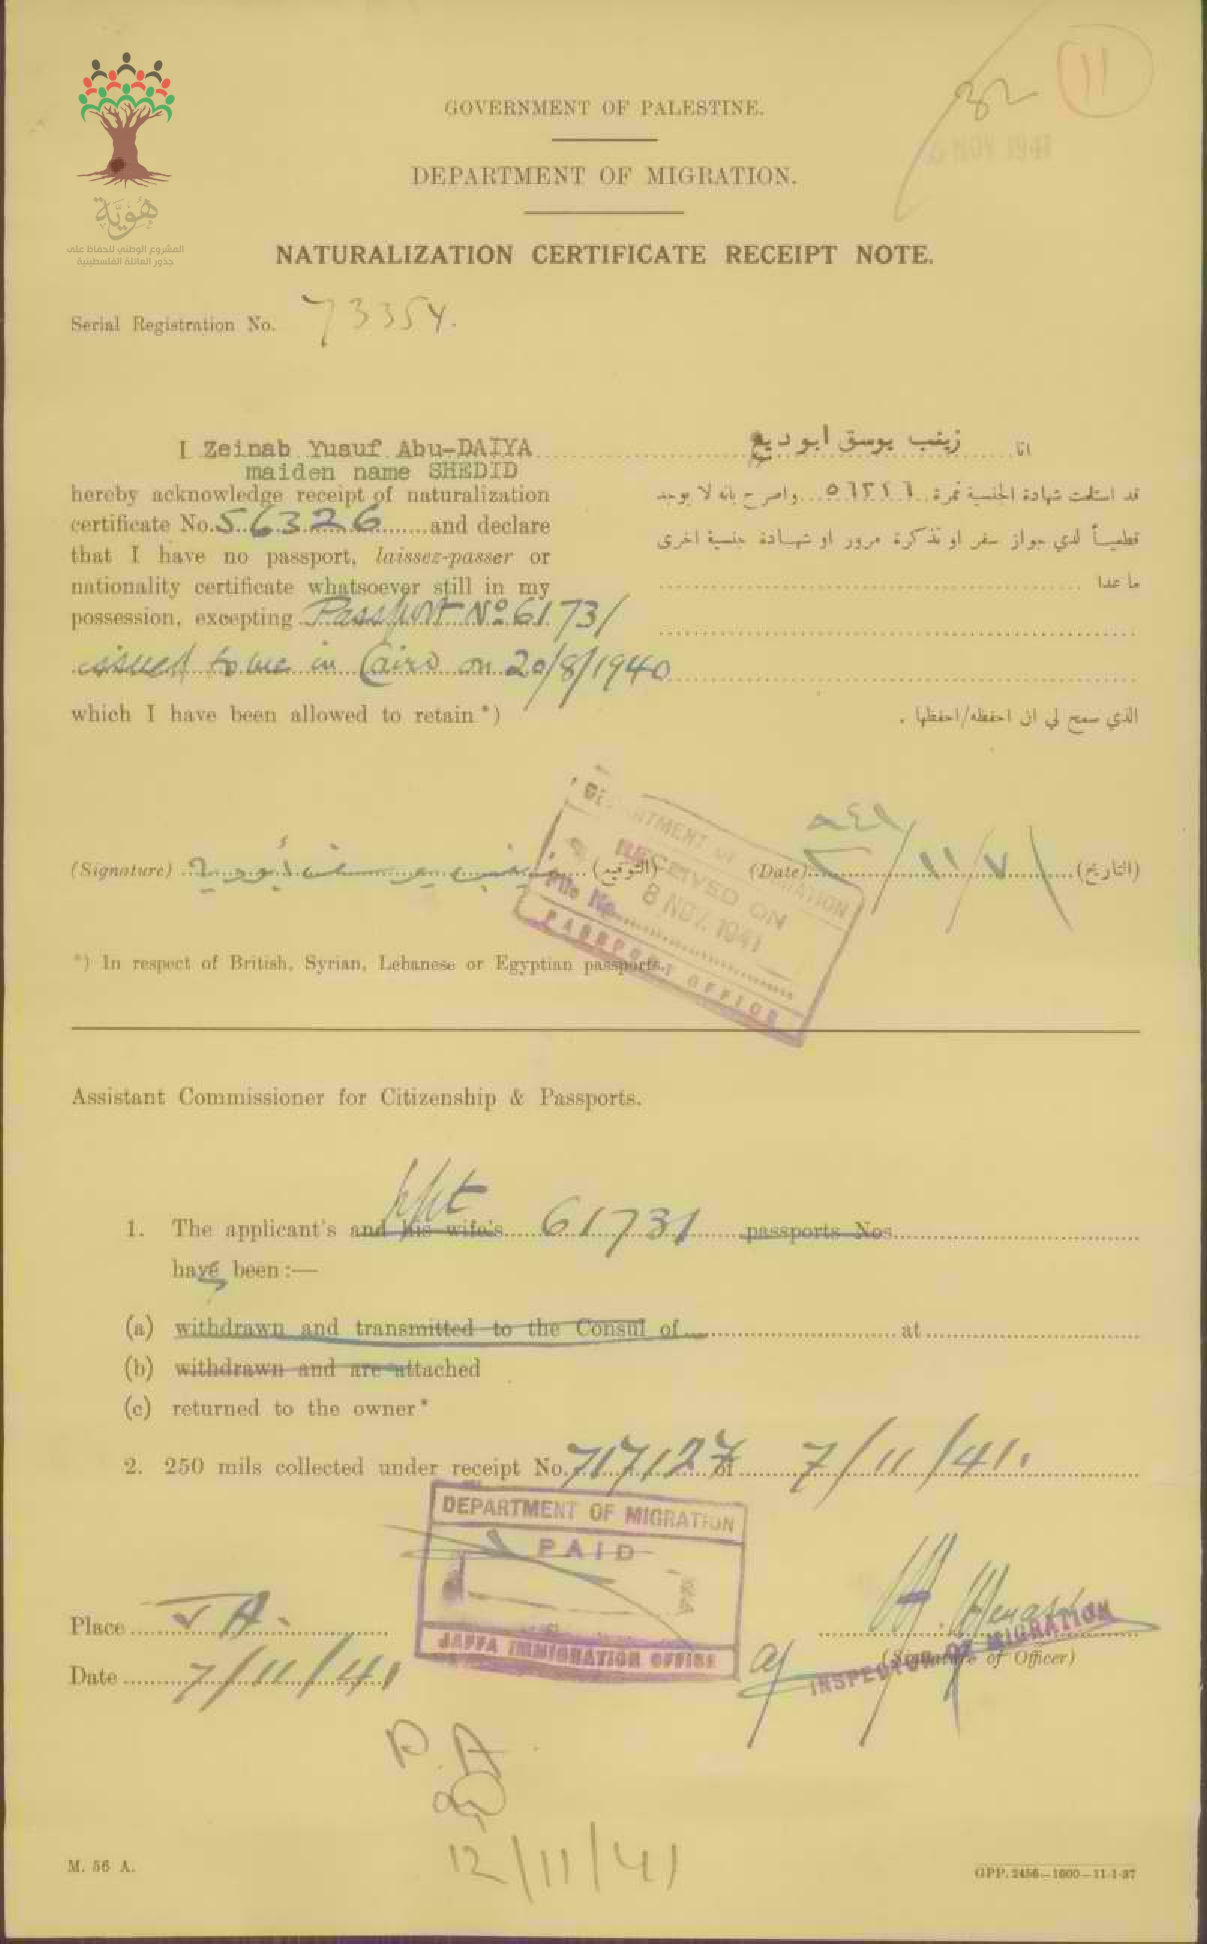 11
32
GOVERNMENT OF PALESTINE.
NOV 1941
DEPARTMENT OF MIGRATION.
هُوِيَّة
المشروع الوطني للحفاظ على
جذور العائلة الفلسطينية
NATURALIZATION CERTIFICATE RECEIPT NOTE.
Serial Registration No. 73354.
I Zeinab Yusuf Abu-DAIYA
maiden name SHEDID
hereby acknowledge receipt of naturalization
certificate No. 56326 and declare
that I have no passport, laissez-passer or
nationality certificate whatsoever still in my
possession, excepting Passport Nº 61731
issued to me in Cairo on 20/8/1940
which I have been allowed to retain *)
انا زينب يوسق ابو ديع
قد استلمت شهادة الجنسية نمرة ٥٦٣٢٦ واصرح بانه لا يوجد
قطعياً لدي جواز سفر او تذكرة مرور او شهادة جنسية اخرى
ما عدا
الذي سمح لي ان احفظه/احفظها .
(Signature) زينب يوسف أبودية (التوقيع)
(Date) ٧/١١/٩٤١ (التاريخ)
DEPARTMENT OF MIGRATION
RECEIVED ON
8 NOV. 1941
File No.
PASSPORT OFFICE
*) In respect of British, Syrian, Lebanese or Egyptian passports.
Assistant Commissioner for Citizenship & Passports.
1. The applicant's and his wife's 61731 passports Nos.
have been :—
(a) withdrawn and transmitted to the Consul of at
(b) withdrawn and are attached
(c) returned to the owner *
2. 250 mils collected under receipt No. 717127 of 7/11/41.
DEPARTMENT OF MIGRATION
PAID
JAFFA IMMIGRATION OFFICE
Place T A.
Date 7/11/41
INSPECTOR OF MIGRATION
(Signature of Officer)
P.A
12/11/41
M. 56 A.
GPP. 2456—1000—11-1-37